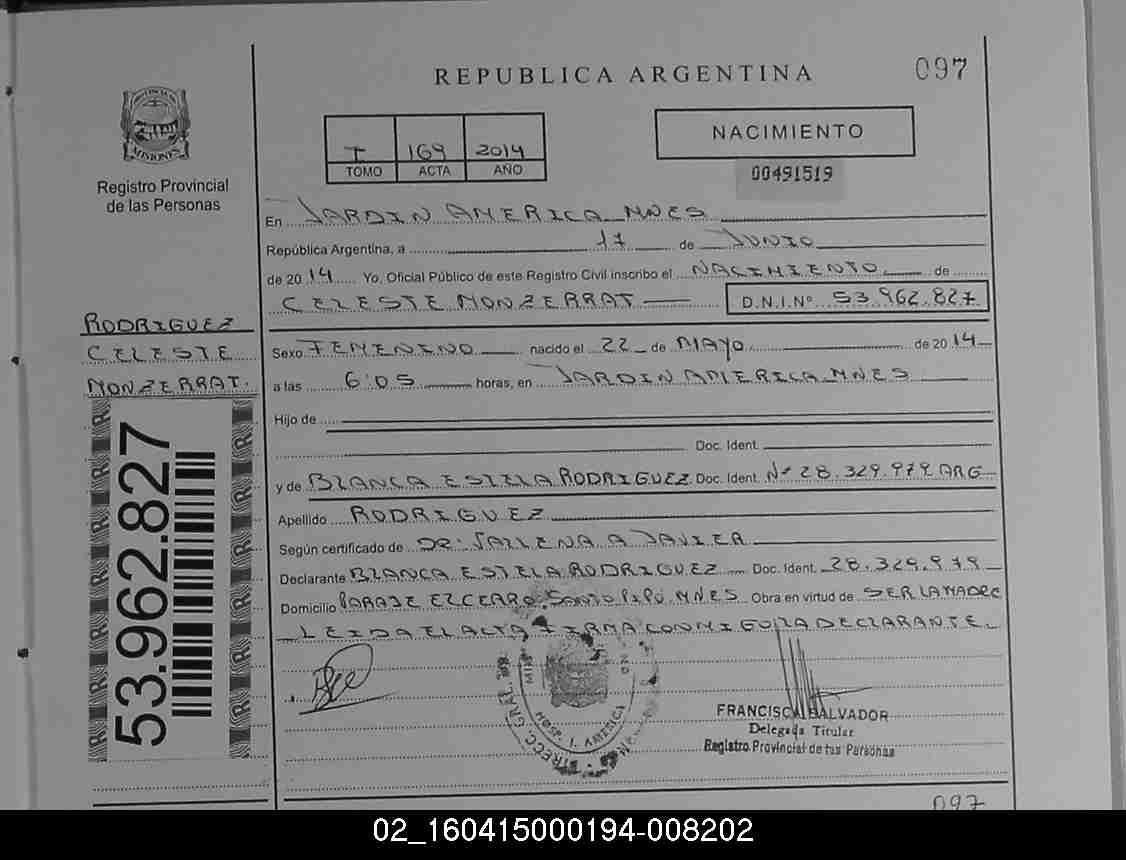 REPUBLICA ARGENTINA
097
PROVINCIA DE
MISIONES
Registro Provincial
de las Personas
I 169 2014
TOMO ACTA AÑO
NACIMIENTO
00491519
En JARDIN AMERICA MNES
República Argentina, a 17 de JUNIO
de 2014 Yo, Oficial Público de este Registro Civil inscribo el NACIMIENTO de
CELESTE MONZERRAT D.N.I.Nº 53.962.827
RODRIGUEZ
CELESTE
MONZERRAT.
Sexo FEMENINO nacido el 22 de MAYO de 2014
a las 6:05 horas, en JARDIN AMERICA MNES
Hijo de
Doc. Ident.
y de BLANCA ESTELA RODRIGUEZ Doc. Ident. Nº 28.329.979 ARG
Apellido RODRIGUEZ
Según certificado de DR: A JAVIER
Declarante BLANCA ESTELA RODRIGUEZ Doc. Ident. 28.329.979
Domicilio PARAJE EL CERRO SANTO PIPO MNES Obra en virtud de SER LA MADRE
LEIDA EL ACTA FIRMA CONMIGO LA DECLARANTE
53.962.827
R R R R R R
HOSP. J. AMERICA
DIRECC. GRAL.
FRANCISCA SALVADOR
Delegada Titular
Registro Provincial de las Personas
097
02_160415000194-008202